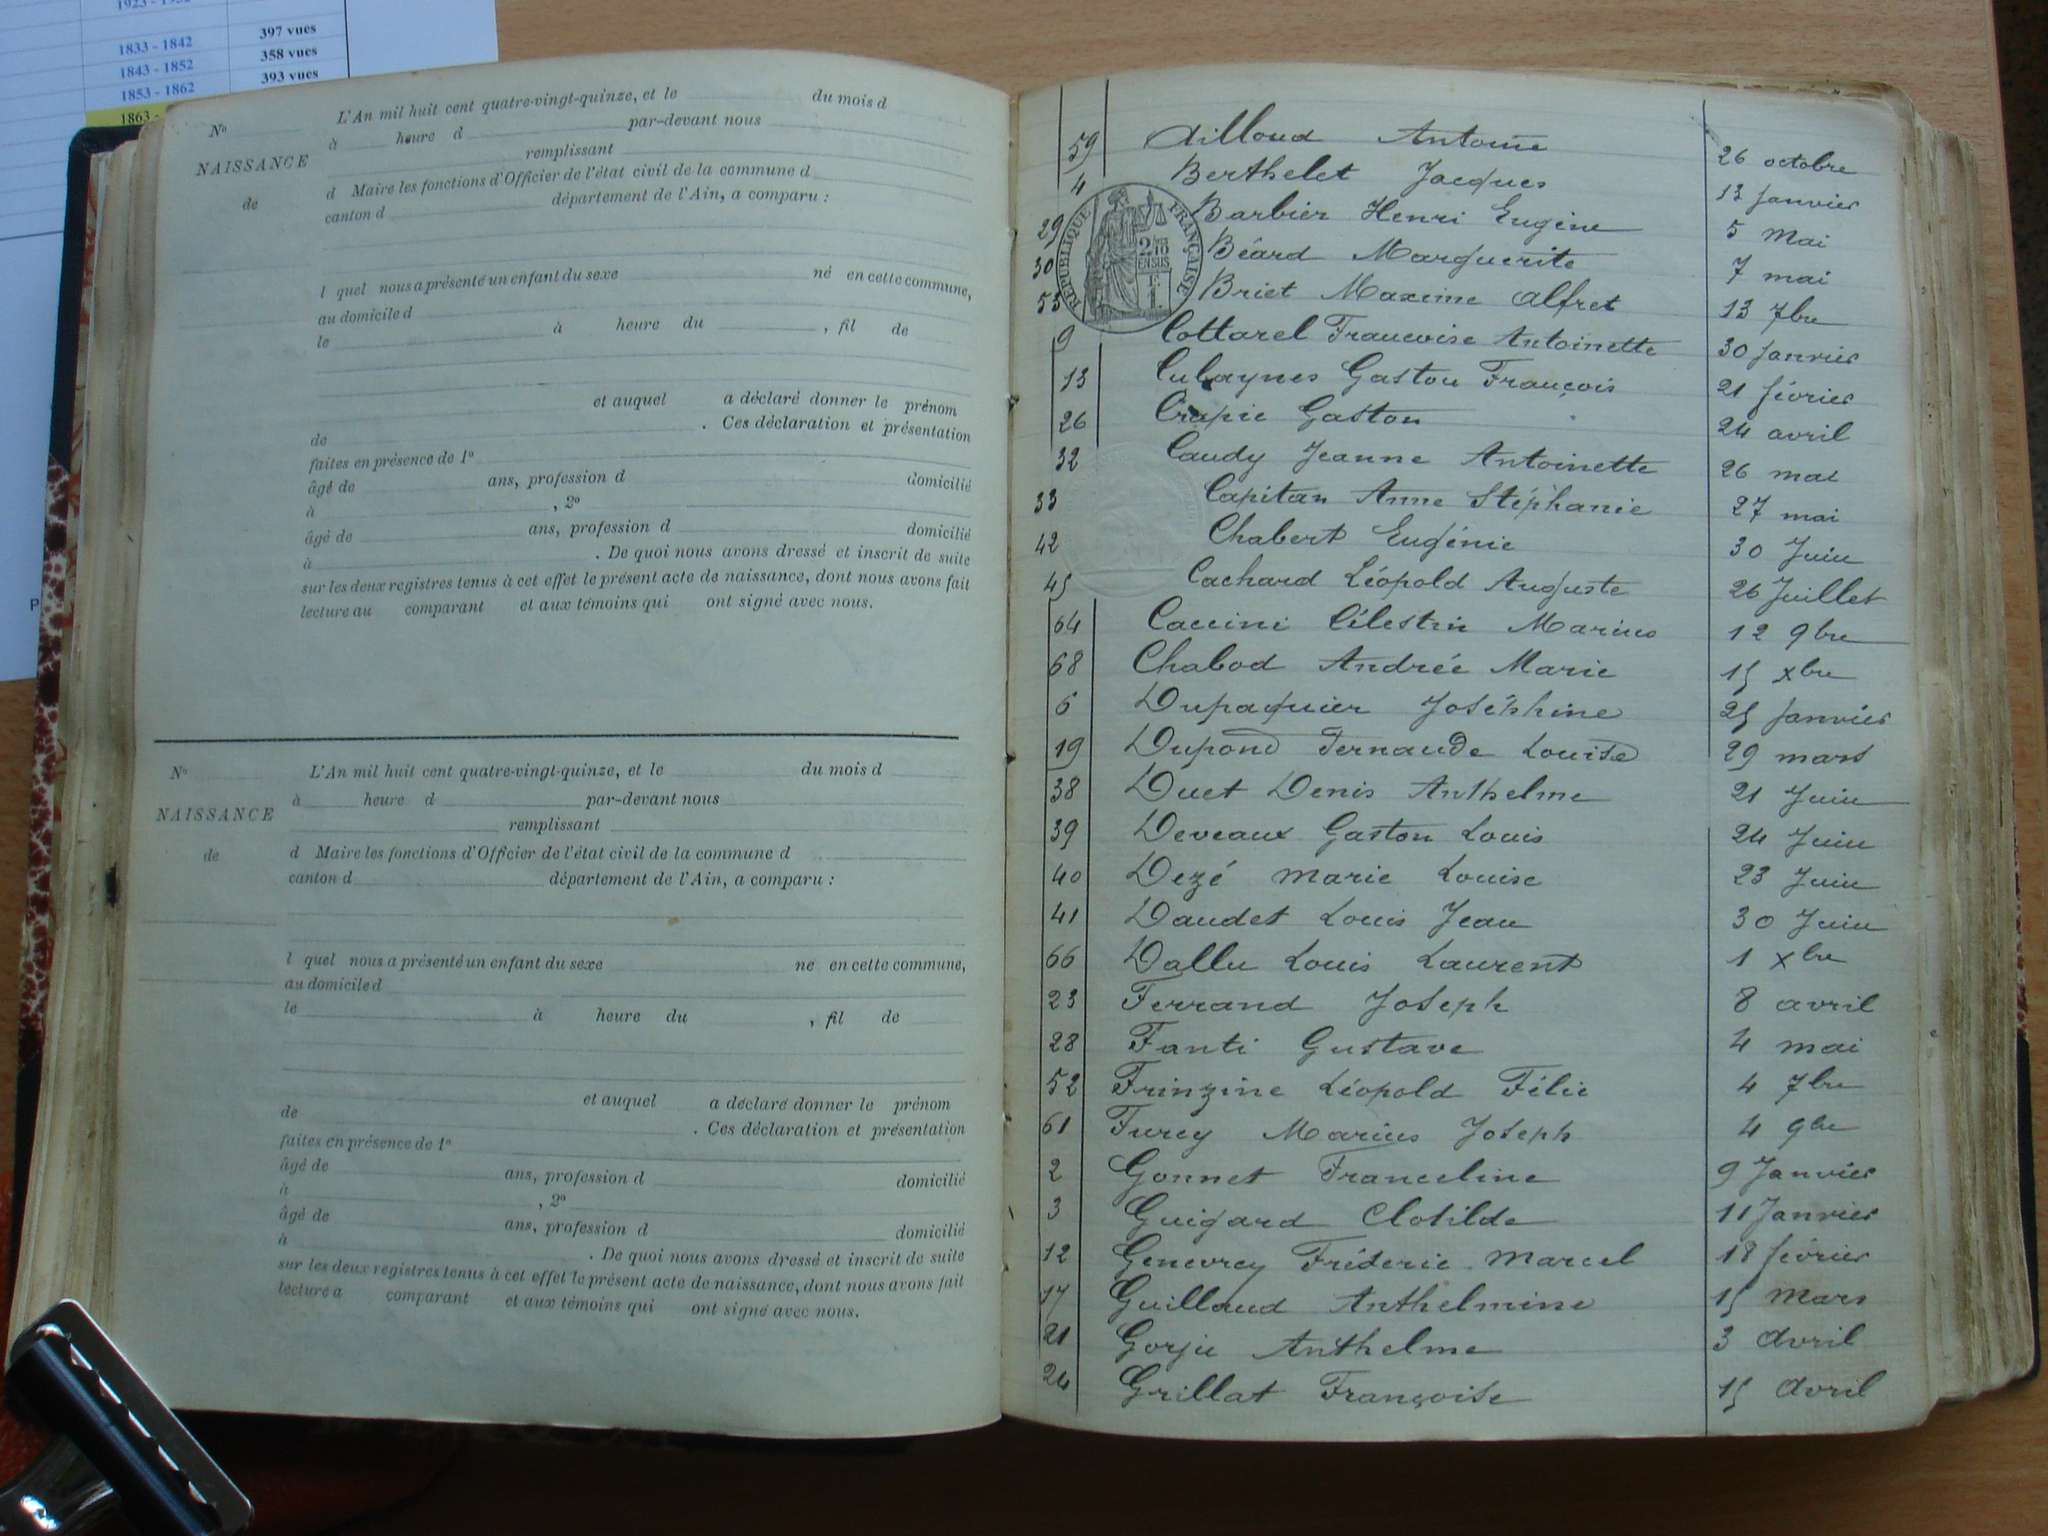 1833 - 1842 397 vues
1843 - 1852 358 vues
1853 - 1862 393 vues
1863 -
No
NAISSANCE
de
L'An mil huit cent quatre-vingt-quinze, et le du mois d
à heure d par-devant nous
remplissant
d Maire les fonctions d'Officier de l'état civil de la commune d
canton d département de l'Ain, a comparu :
l quel nous a présenté un enfant du sexe né en cette commune,
au domicile d
le à heure du , fil de
et auquel a déclaré donner le prénom
de . Ces déclaration et présentation
faites en présence de 1º
âgé de ans, profession d domicilié
à , 2º
âgé de ans, profession d domicilié
à . De quoi nous avons dressé et inscrit de suite
sur les deux registres tenus à cet effet le présent acte de naissance, dont nous avons fait
lecture au comparant et aux témoins qui ont signé avec nous.
No
NAISSANCE
de
L'An mil huit cent quatre-vingt-quinze, et le du mois d
à heure d par-devant nous
remplissant
d Maire les fonctions d'Officier de l'état civil de la commune d
canton d département de l'Ain, a comparu :
l quel nous a présenté un enfant du sexe né en cette commune,
au domicile d
le à heure du , fil de
et auquel a déclaré donner le prénom
de . Ces déclaration et présentation
faites en présence de 1º
âgé de ans, profession d domicilié
à , 2º
âgé de ans, profession d domicilié
à . De quoi nous avons dressé et inscrit de suite
sur les deux registres tenus à cet effet le présent acte de naissance, dont nous avons fait
lecture a comparant et aux témoins qui ont signé avec nous.
REPUBLIQUE FRANÇAISE
59 Ailloud Antoine 26 octobre
4 Berthelet Jacques 13 Janvier
29 Barbier Henri Eugène 5 Mai
30 Béard Marguerite 7 mai
53 Briet Maxime Alfret 13 7bre
9 Cottarel Francoise Antoinette 30 Janvier
13 Culaynes Gaston François 21 février
26 Crapie Gaston 24 avril
32 Caudy Jeanne Antoinette 26 mai
33 Capitan Anne Stéphanie 27 mai
42 Chabert Eugénie 30 Juin
45 Cachard Léopold Auguste 26 Juillet
64 Caccini Célestin Marius 12 9bre
68 Chabod Andrée Marie 15 xbre
6 Dupaquier Joséphine 25 Janvier
19 Dupond Fernande Louise 29 mars
38 Duet Denis Anthelme 21 Juin
39 Deveaux Gaston Louis 24 Juin
40 Dezé Marie Louise 23 Juin
41 Daudet Louis Jean 30 Juin
66 Dallu Louis Laurent 1 xbre
23 Ferrand Joseph 8 avril
28 Fanti Gustave 4 mai
52 Frinzine Léopold Félix 4 7bre
61 Furcy Marius Joseph 4 9bre
2 Gonnet Franceline 9 Janvier
3 Guigard Clotilde 11 Janvier
12 Genevrey Fréderic Marcel 18 février
17 Guillaud Anthelmine 15 Mars
21 Gorju Anthelme 3 Avril
24 Grillat Françoise 15 Avril